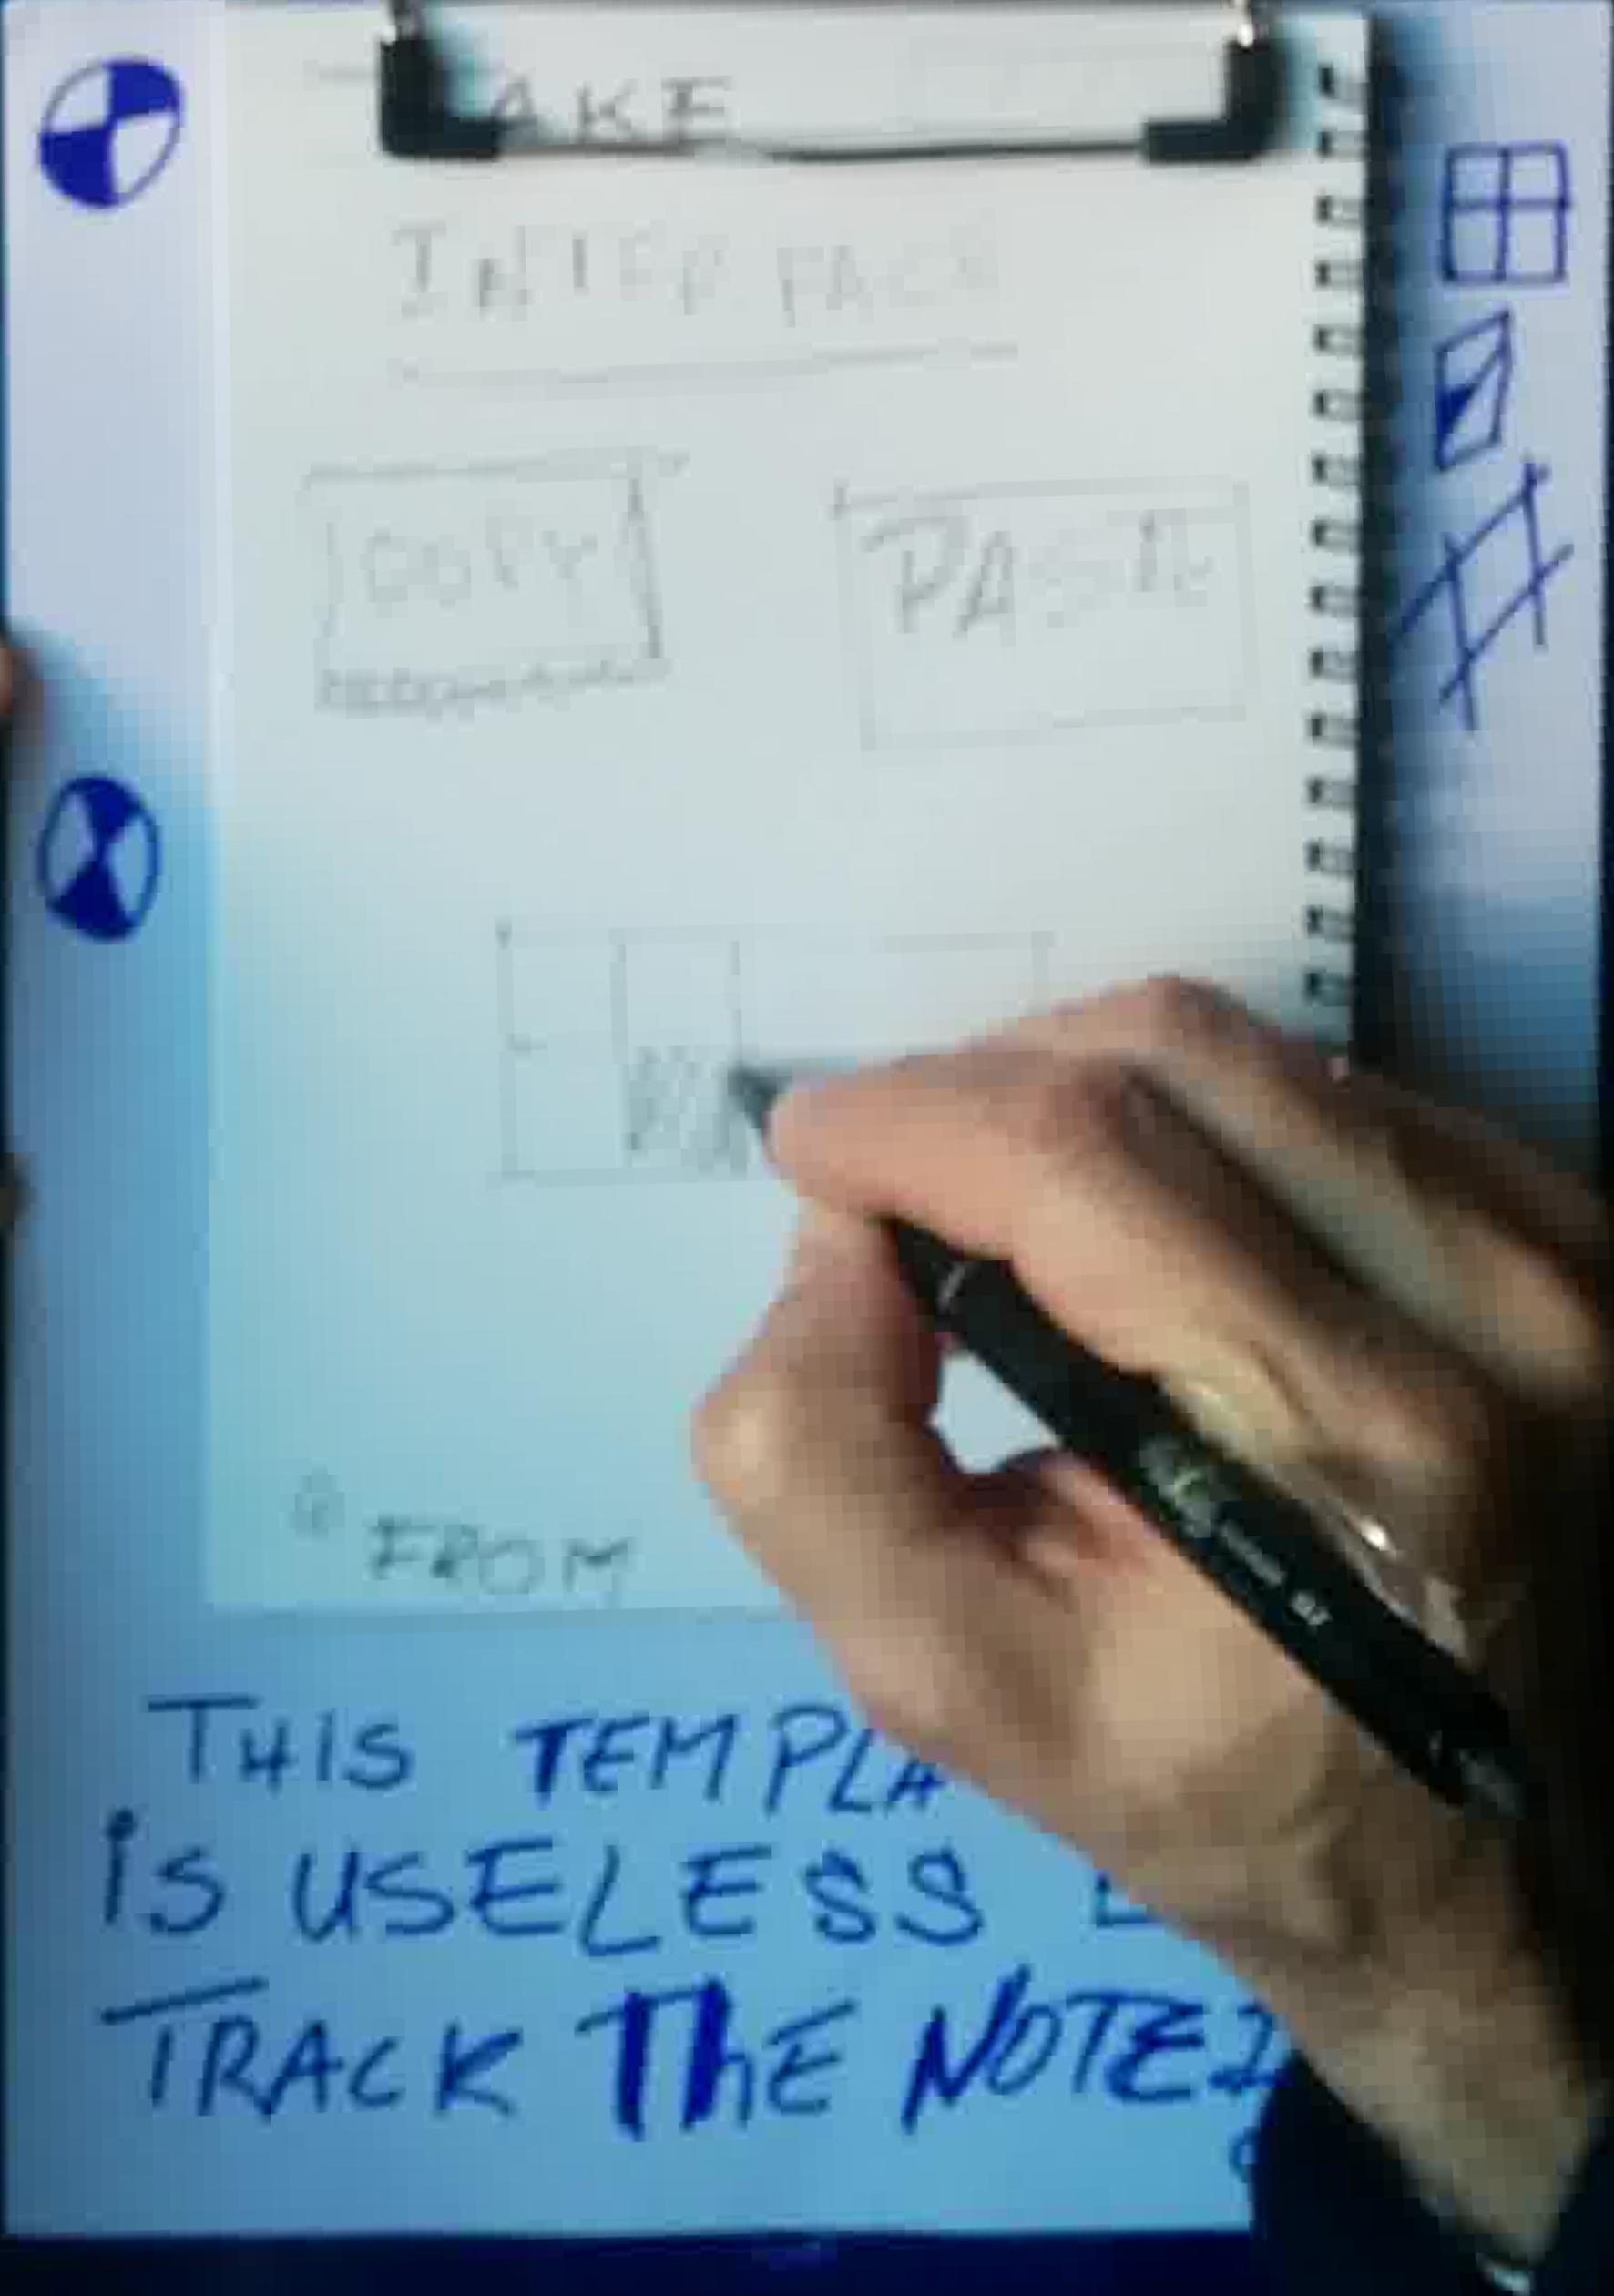 AKE
INTERFACE
COPY
PASTE
FROM
THIS TEMPLA
is USELESS
TRACK ThE NOTE